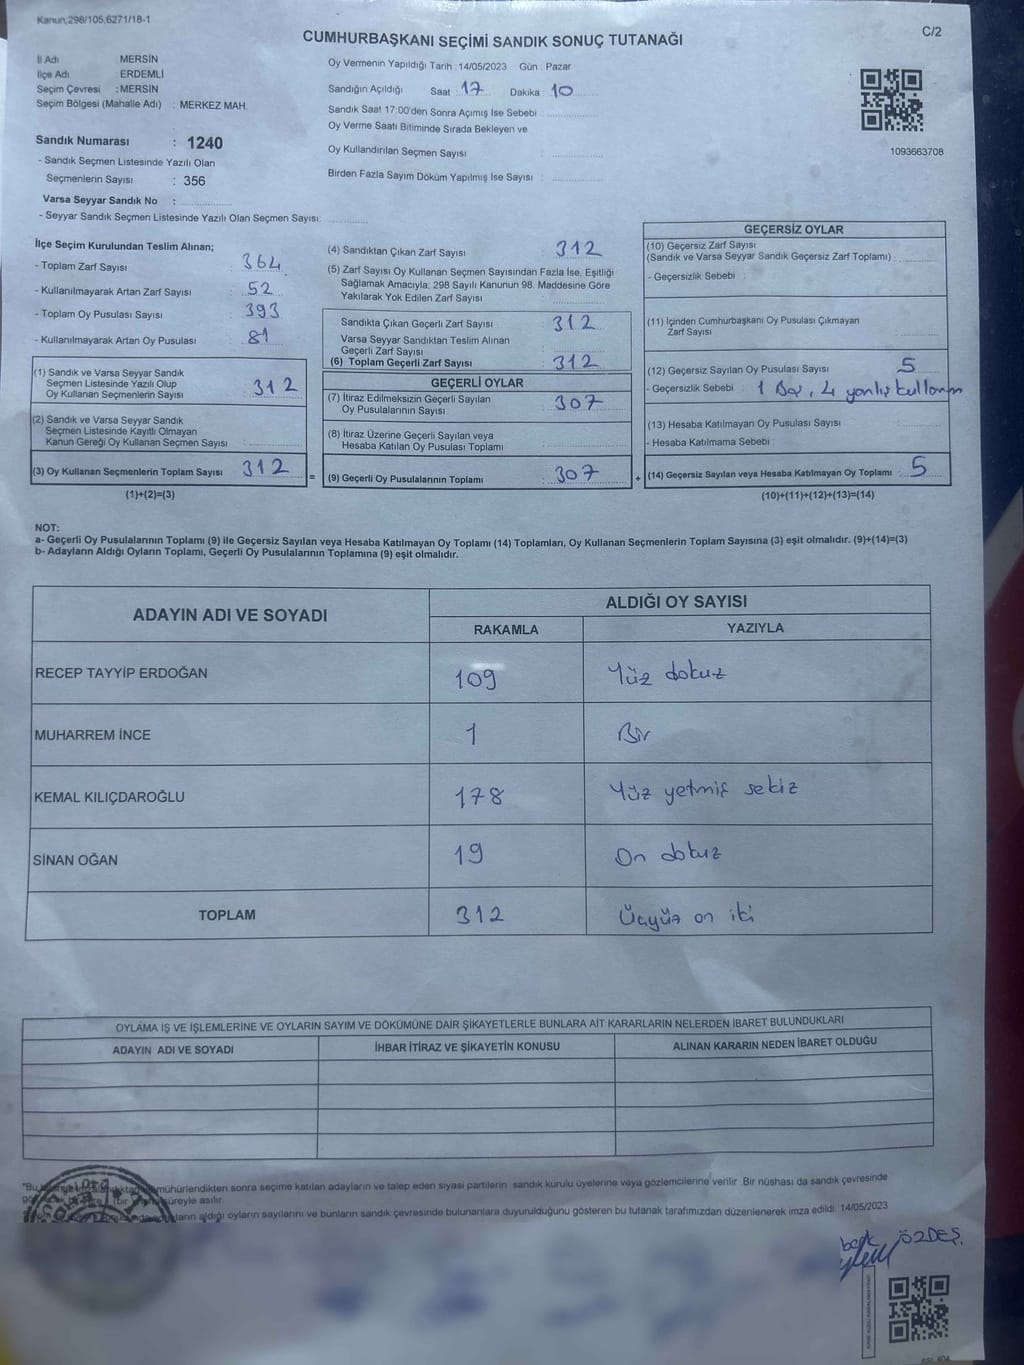 Kanun,298/105,6271/18-1
C/2
CUMHURBAŞKANI SEÇİMİ SANDIK SONUÇ TUTANAĞI
İl Adı MERSİN
İlçe Adı : ERDEMLİ
Seçim Çevresi : MERSİN
Seçim Bölgesi (Mahalle Adı) : MERKEZ MAH.
Oy Vermenin Yapıldığı Tarih :14/05/2023 Gün : Pazar
Sandığın Açıldığı Saat : 17 Dakika : 10
Sandık Saat 17:00'den Sonra Açımış İse Sebebi :
Oy Verme Saati Bitiminde Sırada Bekleyen ve
Oy Kullandırılan Seçmen Sayısı :
Birden Fazla Sayım Döküm Yapılmış İse Sayısı :
1093663708
Sandık Numarası : 1240
- Sandık Seçmen Listesinde Yazılı Olan
Seçmenlerin Sayısı : 356
Varsa Seyyar Sandık No :
- Seyyar Sandık Seçmen Listesinde Yazılı Olan Seçmen Sayısı:
İlçe Seçim Kurulundan Teslim Alınan;
- Toplam Zarf Sayısı 364
- Kullanılmayarak Artan Zarf Sayısı : 52
- Toplam Oy Pusulası Sayısı : 393
- Kullanılmayarak Artan Oy Pusulası : 81
(1) Sandık ve Varsa Seyyar Sandık
Seçmen Listesinde Yazılı Olup
Oy Kullanan Seçmenlerin Sayısı : 312
(2) Sandık ve Varsa Seyyar Sandık
Seçmen Listesinde Kayıtlı Olmayan
Kanun Gereği Oy Kullanan Seçmen Sayısı :
(3) Oy Kullanan Seçmenlerin Toplam Sayısı : 312
(1)+(2)=(3)
=
(4) Sandıktan Çıkan Zarf Sayısı : 312
(5) Zarf Sayısı Oy Kullanan Seçmen Sayısından Fazla İse, Eşitliği
Sağlamak Amacıyla; 298 Sayılı Kanunun 98. Maddesine Göre
Yakılarak Yok Edilen Zarf Sayısı :
Sandıkta Çıkan Geçerli Zarf Sayısı : 312
Varsa Seyyar Sandıktan Teslim Alınan
Geçerli Zarf Sayısı :
(6) Toplam Geçerli Zarf Sayısı : 312
GEÇERLİ OYLAR
(7) İtiraz Edilmeksizin Geçerli Sayılan
Oy Pusulalarının Sayısı : 307
(8) İtiraz Üzerine Geçerli Sayılan veya
Hesaba Katılan Oy Pusulası Toplamı :
(9) Geçerli Oy Pusulalarının Toplamı : 307
+
GEÇERSİZ OYLAR
(10) Geçersiz Zarf Sayısı
(Sandık ve Varsa Seyyar Sandık Geçersiz Zarf Toplamı) :
- Geçersizlik Sebebi :
(11) İçinden Cumhurbaşkanı Oy Pusulası Çıkmayan
Zarf Sayısı :
(12) Geçersiz Sayılan Oy Pusulası Sayısı : 5
- Geçersizlik Sebebi : 1 Boş, 4 yanlış kullanım
(13) Hesaba Katılmayan Oy Pusulası Sayısı :
- Hesaba Katılmama Sebebi :
(14) Geçersiz Sayılan veya Hesaba Katılmayan Oy Toplamı : 5
(10)+(11)+(12)+(13)=(14)
NOT:
a- Geçerli Oy Pusulalarının Toplamı (9) ile Geçersiz Sayılan veya Hesaba Katılmayan Oy Toplamı (14) Toplamları, Oy Kullanan Seçmenlerin Toplam Sayısına (3) eşit olmalıdır. (9)+(14)=(3)
b- Adayların Aldığı Oyların Toplamı, Geçerli Oy Pusulalarının Toplamına (9) eşit olmalıdır.
ADAYIN ADI VE SOYADI ALDIĞI OY SAYISI
RAKAMLA YAZIYLA
RECEP TAYYİP ERDOĞAN 109 Yüz dokuz
MUHARREM İNCE 1 Bir
KEMAL KILIÇDAROĞLU 178 Yüz yetmiş sekiz
SİNAN OĞAN 19 On dokuz
TOPLAM 312 Üçyüz on iki
OYLAMA İŞ VE İŞLEMLERİNE VE OYLARIN SAYIM VE DÖKÜMÜNE DAİR ŞİKAYETLERLE BUNLARA AİT KARARLARIN NELERDEN İBARET BULUNDUKLARI
ADAYIN ADI VE SOYADI İHBAR İTİRAZ VE ŞİKAYETİN KONUSU ALINAN KARARIN NEDEN İBARET OLDUĞU
*Bu mühürlendikten sonra seçime katılan adayların ve talep eden siyasi partilerin sandık kurulu üyelerine veya gözlemcilerine verilir. Bir nüshası da sandık çevresinde
bir süreyle asılır.
aldığı oyların sayılarını ve bunların sandık çevresinde bulunanlara duyurulduğunu gösteren bu tutanak tarafımızdan düzenlenerek imza edildi. 14/05/2023
ÖZDEŞ